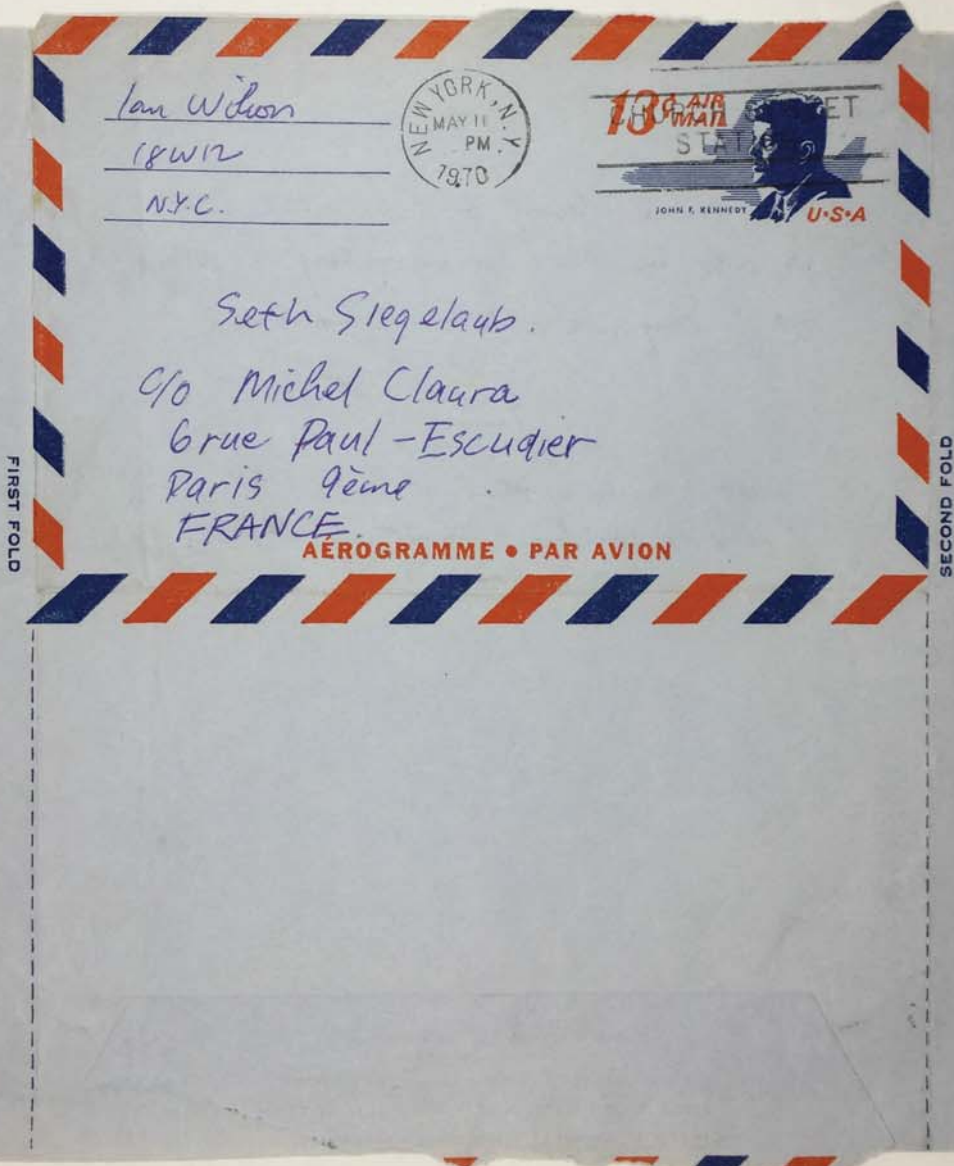 Ian Wilson
18 W 12
N.Y.C.
NEW YORK, N.Y.
MAY 11
PM
1970
13¢ AIR MAIL
CHURCH STREET
STATION
JOHN F. KENNEDY
U·S·A
Seth Siegelaub.
c/o Michel Claura
6 rue Paul-Escudier
Paris 9ème
FRANCE.
AÉROGRAMME • PAR AVION
FIRST FOLD
SECOND FOLD